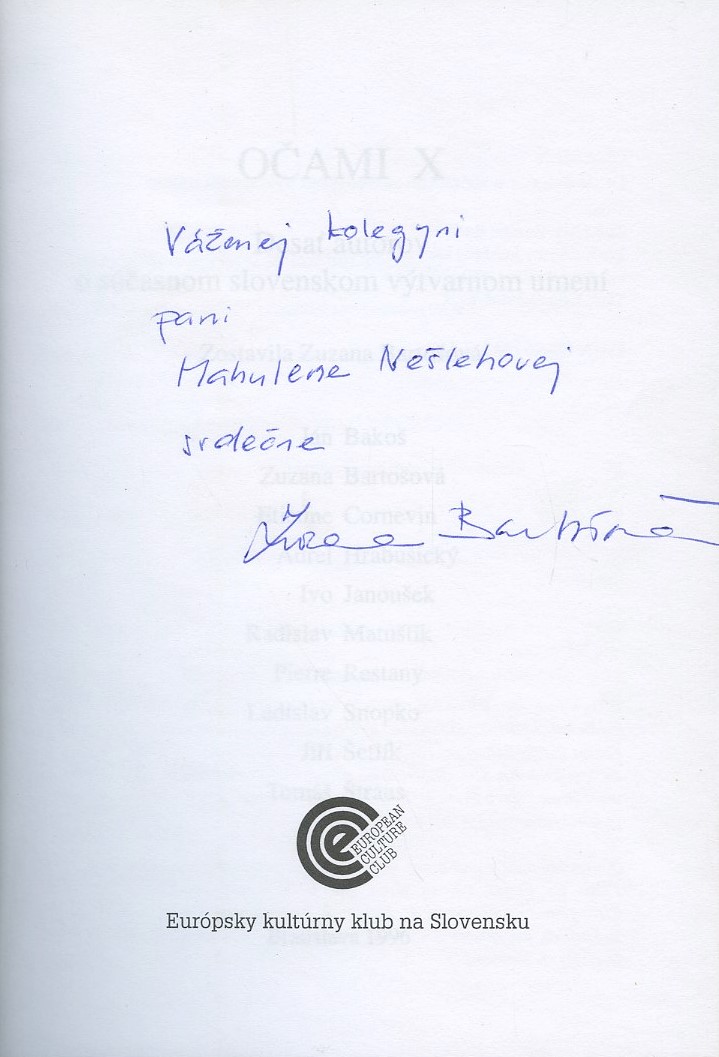 OČAMI X
Váženej kolegyni
Desať autorov
o súčasnom slovenskom výtvarnom umení
pani
Zostavila Zuzana
Mahulene Nešlehovej
Ján Bakoš
srdečne
Zuzana Bartošová
Etienne Cornevin
Zuzana Bartošová
Aurel Hrabušický
Ivo Janoušek
Radislav Matuštík
Pierre Restany
Ladislav Snopko
Jiří Šetlík
Tomáš Štrauss
e EUROPEAN
CULTURE
CLUB
Európsky kultúrny klub na Slovensku
Bratislava 1996